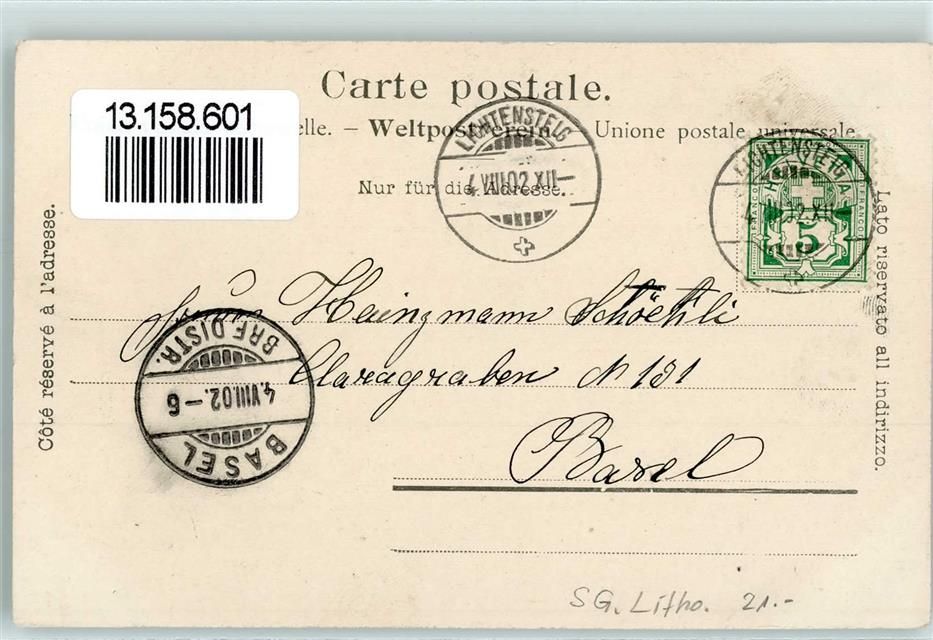 Carte postale.
13.158.601
elle. – Weltpostverein. – Unione postale universale
Nur für die Adresse.
LICHTENSTEIG
4.VIII.02.XII–
LICHTENSTEIG
4.VIII.02.XII
HELVETIA
FRANCO
5
Côté réservé à l'adresse.
Lato riservato all indirizzo.
Heinzmann Schöchli
Claragraben N 131
Basel
BRF. DISTR.
4.VIII.02.–6
BASEL
SG. Litho. 21.-